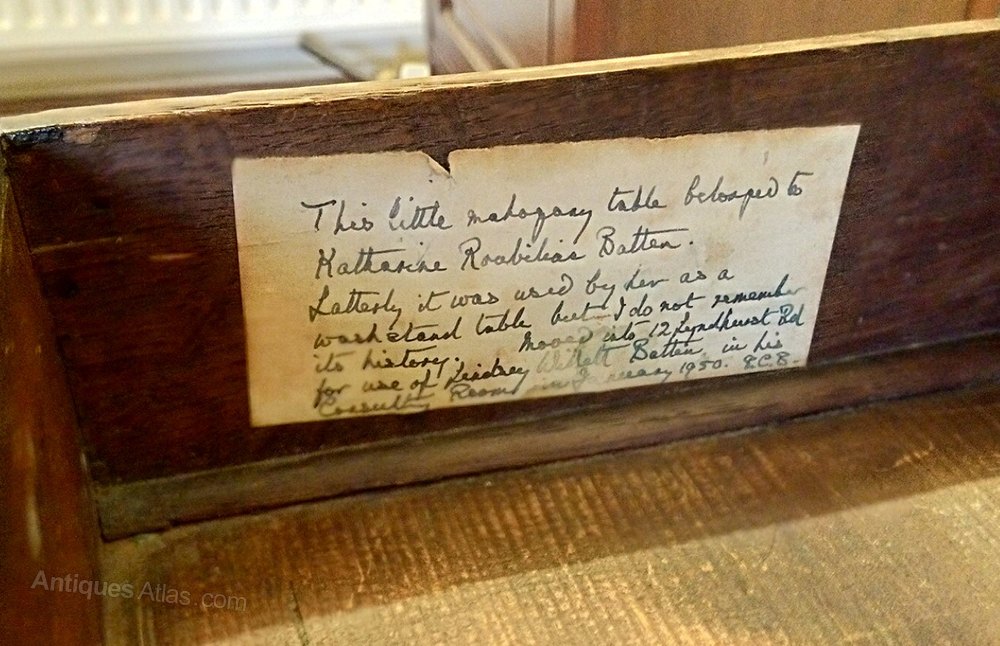 This little mahogany table belonged to
Katharine Roubiliac Batten.
Latterly it was used by her as a
washstand table but I do not remember
its history. Moved into 12 Lyndhurst Rd
for use of Lindsey Willett Batten in his
Consulting Room in January 1950. E.C.B.
Antiques Atlas.com